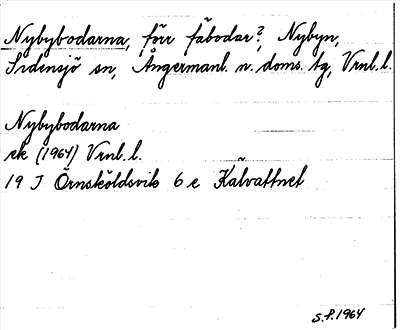 Nybybodarna, förr fäbodar?, Nybyn,
Sidensjö sn, Ångermanl. n. doms. tg, Vrnl. l.
Nybybodarna
ek (1964) Vrnl. l.
19 J Örnsköldsvik 6 e Kälvattnet
S.F. 1964